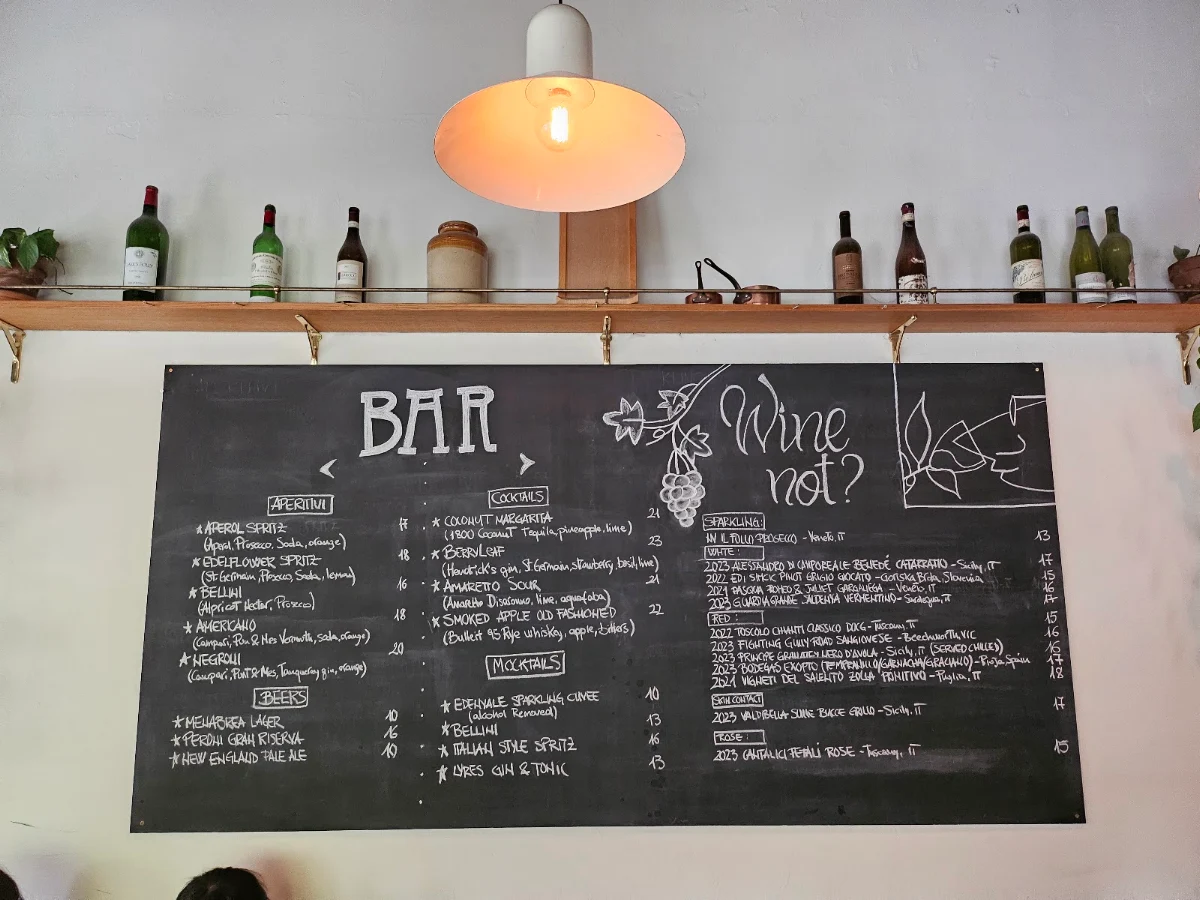 BAR
APERITIVI
★ APEROL SPRITZ 17
(Aperol, Prosecco, Soda, orange)
★ EDELFLOWER SPRITZ 18
(St Germain, Prosecco, Soda, lemon)
★ BELLINI 16
(Apricot Nectar, Prosecco)
★ AMERICANO 18
(Campari, Punt & Mes Vermouth, soda, orange)
★ NEGRONI 20
(Campari, Punt & Mes, Tanqueray gin, orange)
BEERS
★ MENABREA LAGER 10
★ PERONI GRAN RISERVA 16
★ NEW ENGLAND PALE ALE 10
COCKTAILS
★ COCONUT MARGARITA 21
(1800 Coconut Tequila, pineapple, lime)
★ BERRY LEAF 23
(Hendrick's gin, St Germain, strawberry, basil, lime)
★ AMARETTO SOUR 21
(Amaretto Disaronno, lime, aquafaba)
★ SMOKED APPLE OLD FASHIONED 22
(Bulleit 95 Rye whiskey, apple, bitters)
MOCKTAILS
★ EDENVALE SPARKLING CUVEE 10
(alcohol Removed)
★ BELLINI 13
★ ITALIAN STYLE SPRITZ 16
★ LYRES GIN & TONIC 13
Wine
not?
SPARKLING:
NV IL FOLLO PROSECCO - Veneto, IT 13
WHITE:
2023 ALESSANDRO DI CAMPOREALE BENEDÉ CATARRATTO - Sicily, IT 17
2022 EDI SIMCIC PINOT GRIGIO GIOCATO - Goriska Brda, Slovenia 15
2021 PASQUA ROMEO & JULIET GARGANEGA - Veneto, IT 16
2023 GUARDIA GRANDE VERMENTINO - Sardegna, IT 17
RED:
2022 TOSCOLO CHIANTI CLASSICO DOCG - Tuscany, IT 15
2023 FIGHTING GULLY ROAD SANGIOVESE - Beechworth, VIC 16
2023 PRINCIPE GRANATEY NERO D'AVOLA - Sicily, IT (SERVED CHILLED) 16
2023 BODEGAS EXOPTO (TEMPRANILLO/GARNACHA/GRACIANO) - Rioja, Spain 17
2021 VIGNETI DEL SALENTO ZOLLA PRIMITIVO - Puglia, IT 18
SKIN CONTACT
2023 VALDIBELLA SULLE BUCCE GRILLO - Sicily, IT 17
ROSE:
2023 CANTALICI PETALI ROSE - Tuscany, IT 15